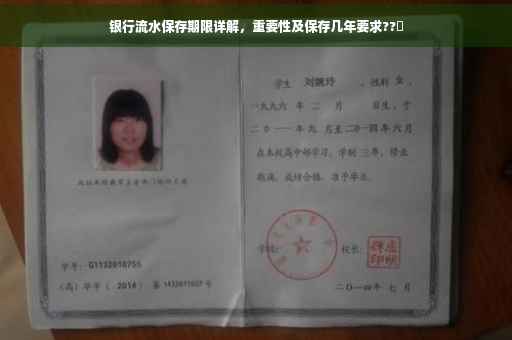 银行流水保存期限详解，重要性及保存几年要求??▯
学生 刘婉玲 ，性别 女 ，
一九九六 年 二 月 日生，于
二〇一一 年 九 月至二〇一四 年 六 月
在本校高中部学习，学制 三 年，修业
期满，成绩合格，准予毕业。
学号：G1132010755
（高）毕字（ 2014 ）第 1432011037 号
学校：
校长：
二〇一四年 七 月